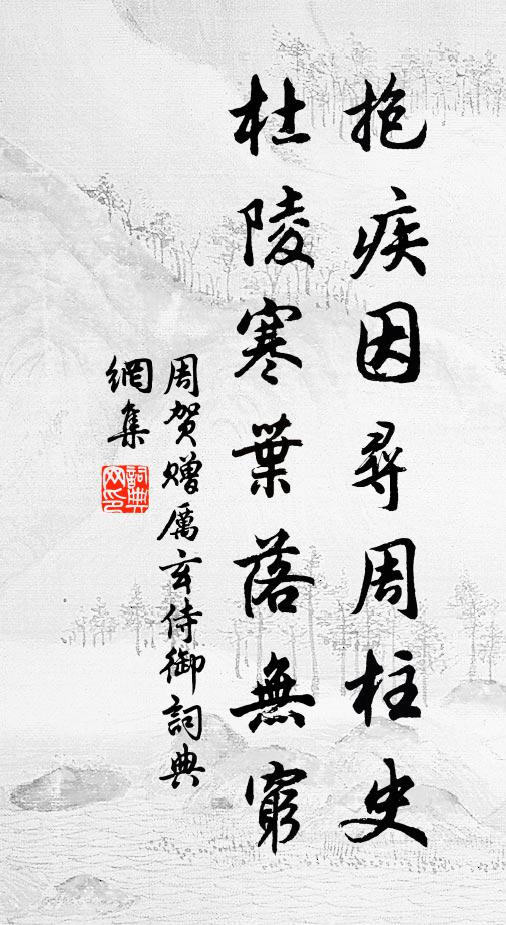 抱疾因尋周柱史
杜陵寒葉落無窮
周贺赠厲玄侍御詞典
網集
詞典網印